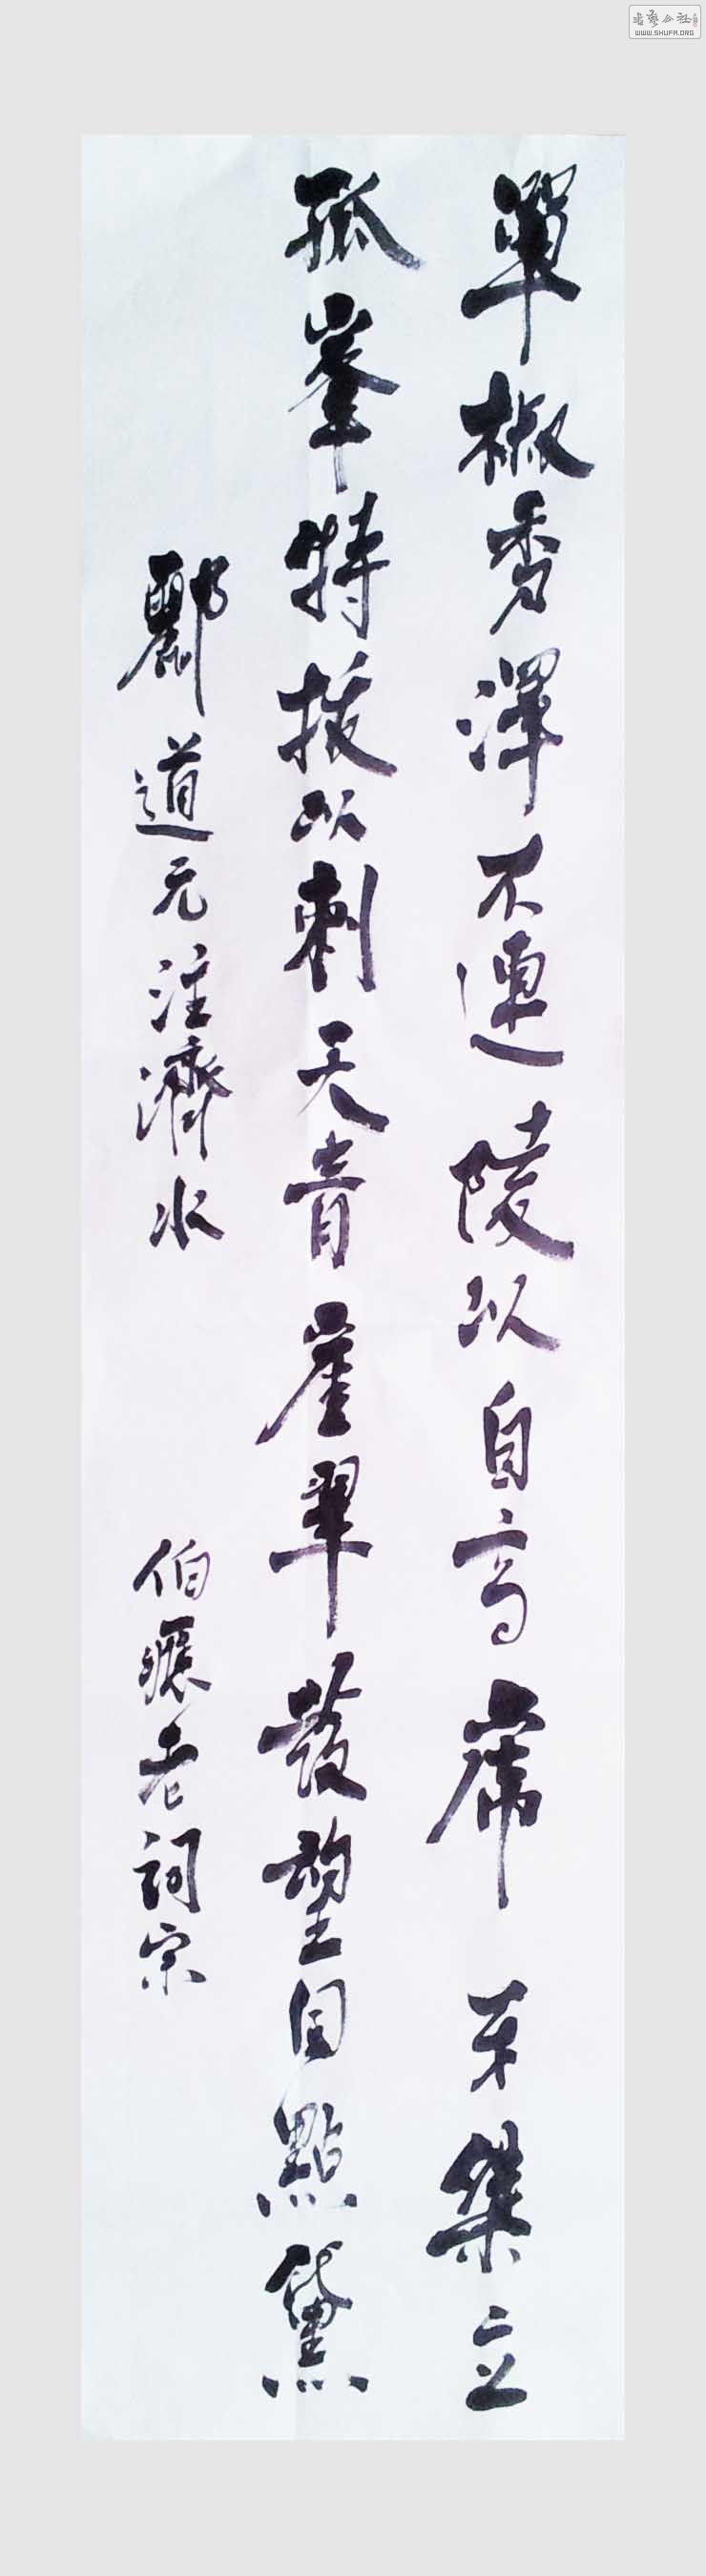 單椒秀澤不連陵以自高虎牙桀立
孤峯特拔以刺天青崖翠發望同點黛
酈道元注濟水
伯 老詞宗
WWW.SHUFA.ORG